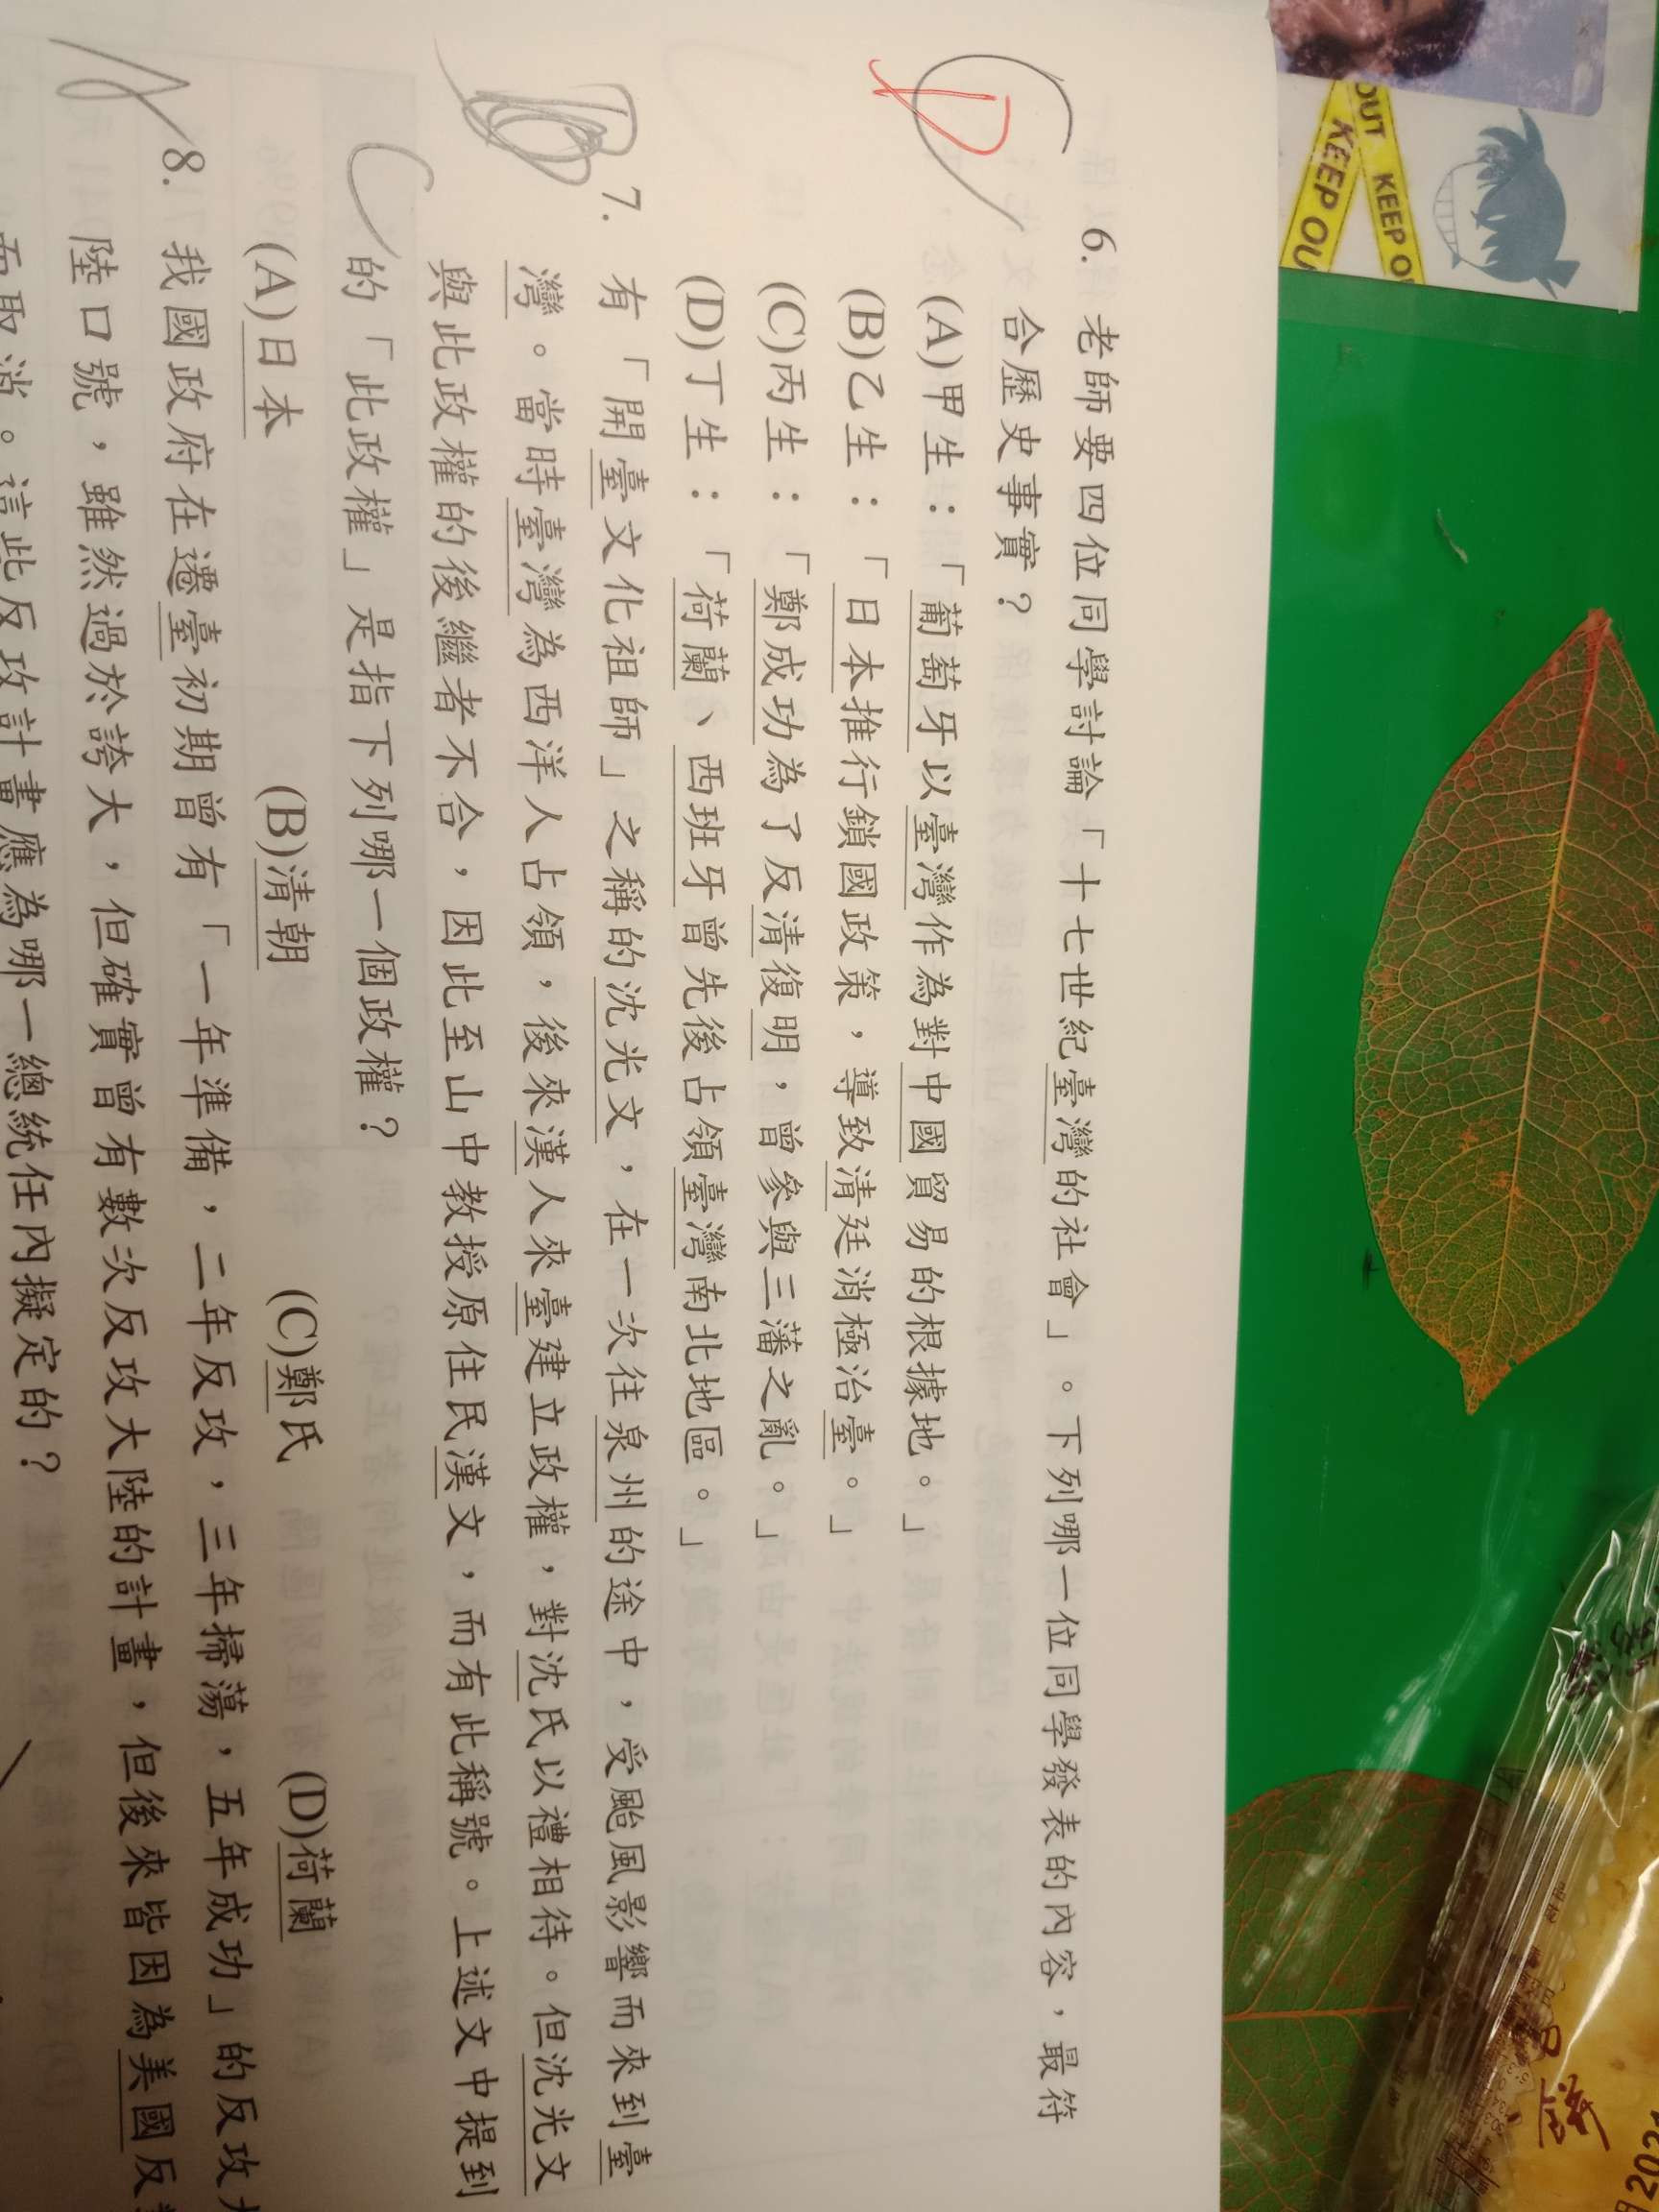 6. 老師要四位同學討論「十七世紀臺灣的社會」。下列哪一位同學發表的內容，最符
合歷史事實？
(A)甲生：「葡萄牙以臺灣作為對中國貿易的根據地。」
(B)乙生：「日本推行鎖國政策，導致清廷消極治臺。」
(C)丙生：「鄭成功為了反清復明，曾參與三藩之亂。」
(D)丁生：「荷蘭、西班牙曾先後占領臺灣南北地區。」
D
7. 有「開臺文化祖師」之稱的沈光文，在一次往泉州的途中，受颱風影響而來到臺
灣。當時臺灣為西洋人占領，後來漢人來臺建立政權，對沈氏以禮相待。但沈光文
與此政權的後繼者不合，因此至山中教授原住民漢文，而有此稱號。上述文中提到
的「此政權」是指下列哪一個政權？
C
(A)日本 (B)清朝 (C)鄭氏 (D)荷蘭
8. 我國政府在遷臺初期曾有「一年準備，二年反攻，三年掃蕩，五年成功」的反攻大
陸口號，雖然過於誇大，但確實曾有數次反攻大陸的計畫，但後來皆因為美國反
而取消。這此反攻計畫應為哪一總統任內擬定的？
A
OUT KEEP O
KEEP OU